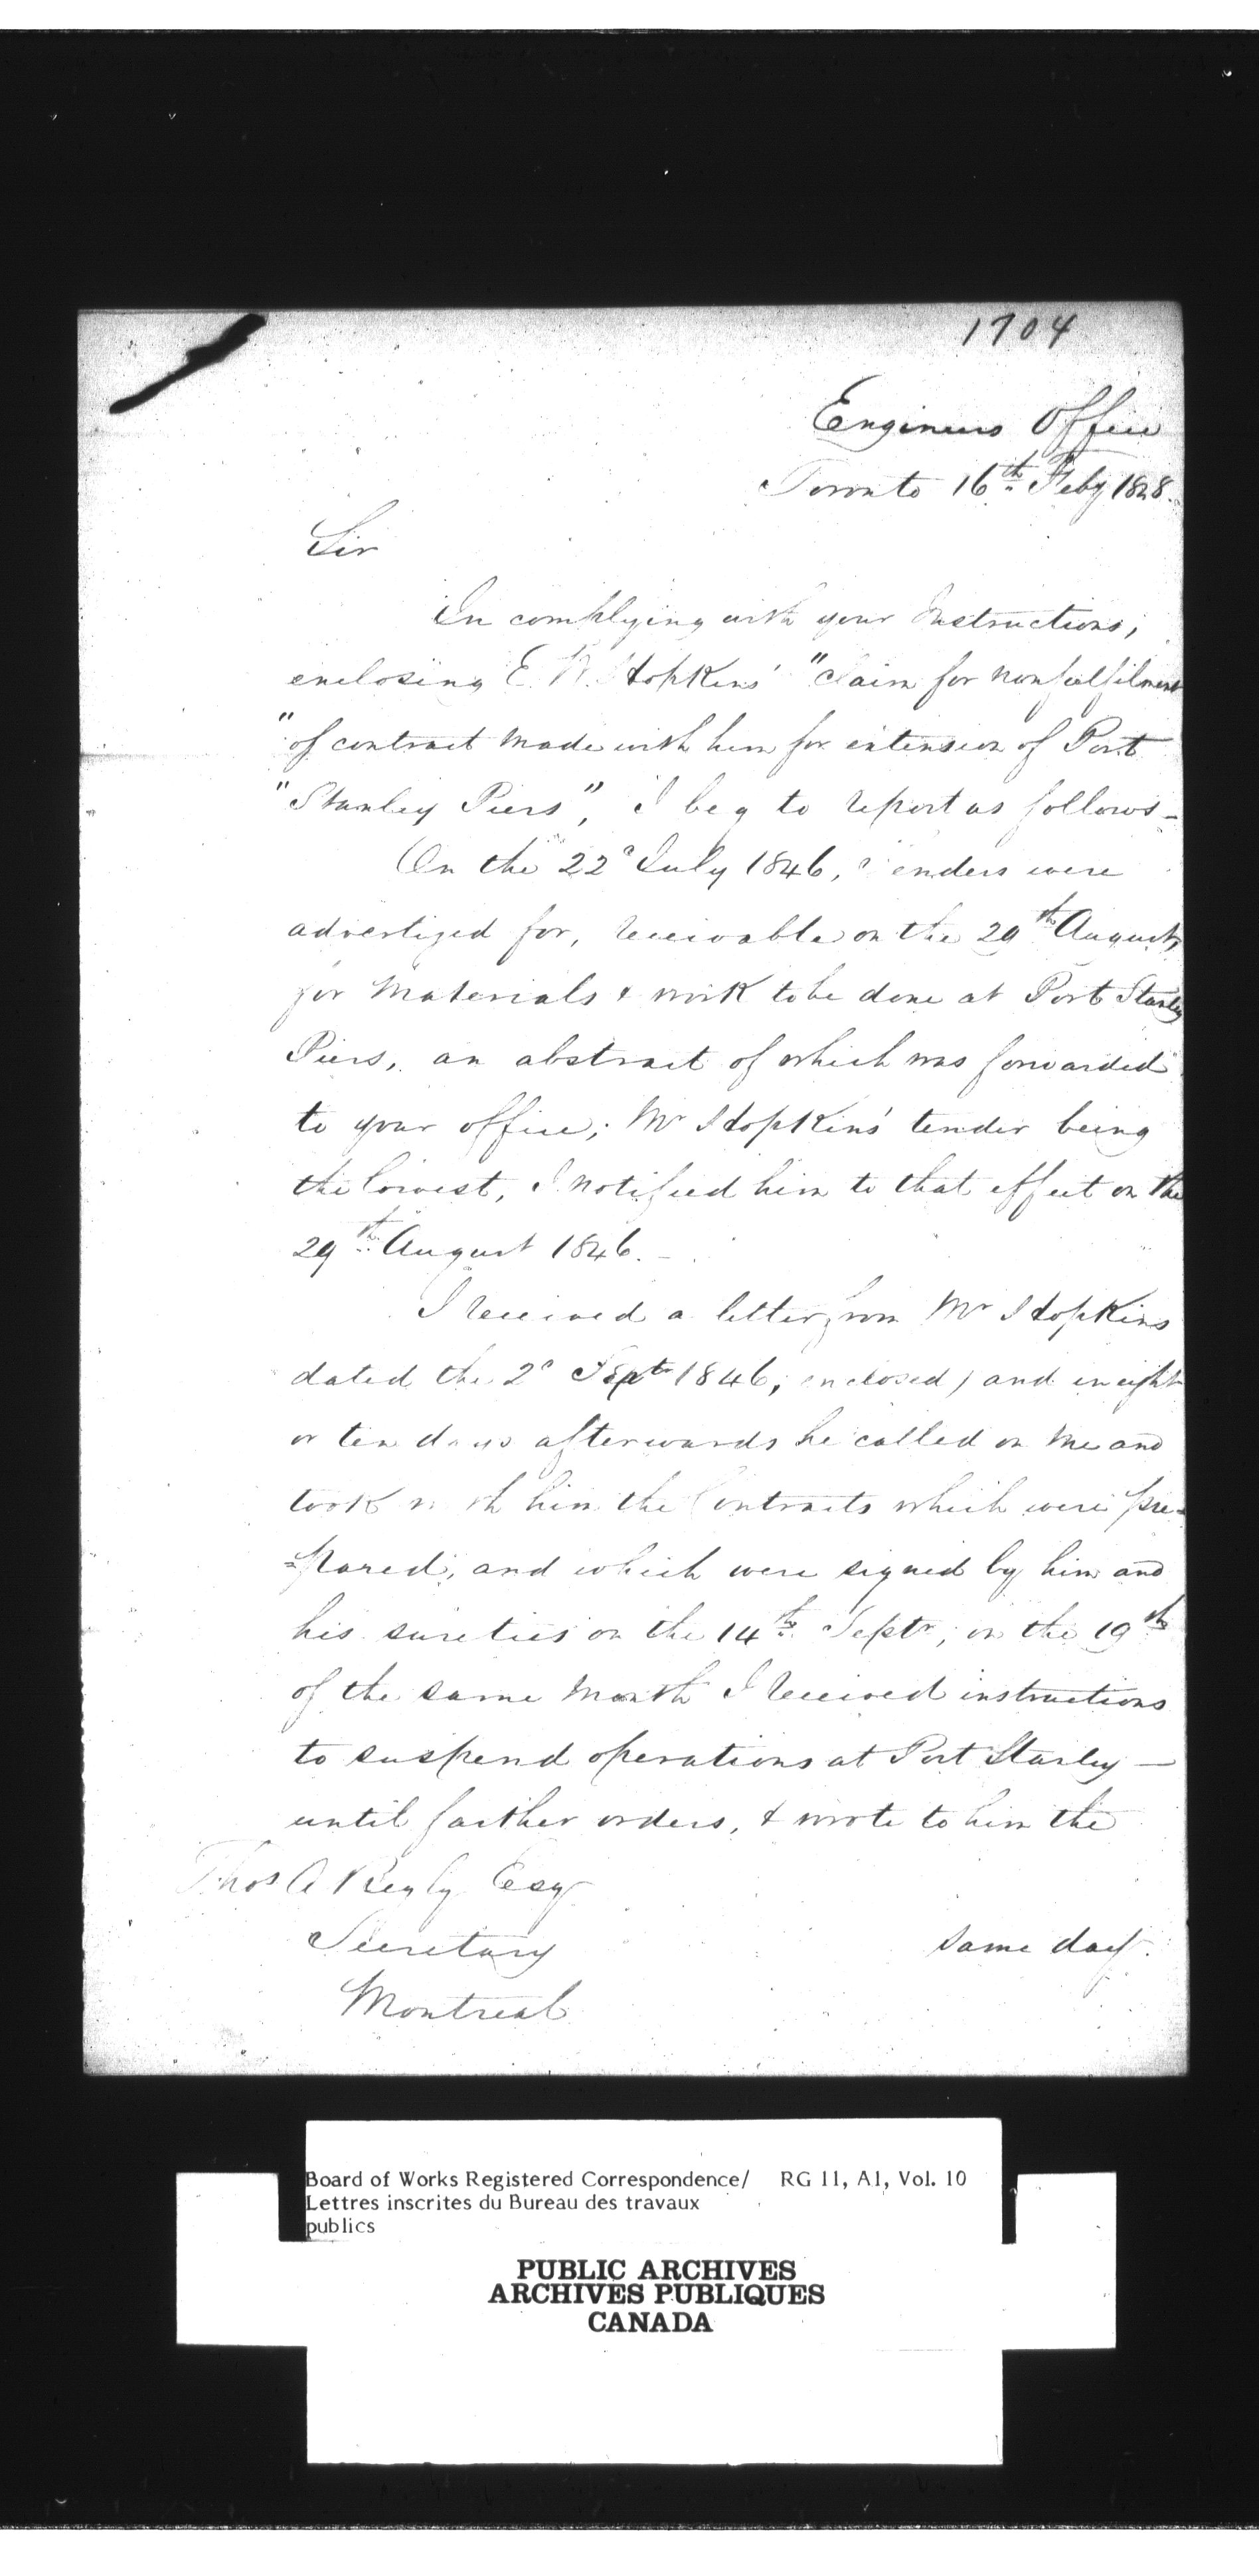 1704
Engineers Office
Toronto 16th Feby 1848.
Sir
In complying with your Instructions,
enclosing E. W. Hopkins' "claim for nonfulfilment
"of contract made with him for extension of Port
"Stanley Piers", I beg to report as follows -
On the 22d July 1846, Tenders were
advertized for, receivable on the 29th August,
for Materials & work to be done at Port Stanley
Piers, an abstract of which was forwarded
to your office; Mr Hopkins' tender being
the lowest, I notified him to that effect on the
29th August 1846. -
I received a letter from Mr Hopkins
dated the 2d Septr 1846, enclosed) and in eight
or ten days afterwards he called on me and
took with him the Contracts which were pre=
=pared, and which were signed by him and
his sureties on the 14th Septr, on the 19th
of the same Month I received instructions
to suspend operations at Port Stanley —
until farther orders, & wrote to him the
same day.
Thos A Begly Esqr
Secretary
Montreal
Board of Works Registered Correspondence/ RG 11, A1, Vol. 10
Lettres inscrites du Bureau des travaux
publics
PUBLIC ARCHIVES
ARCHIVES PUBLIQUES
CANADA